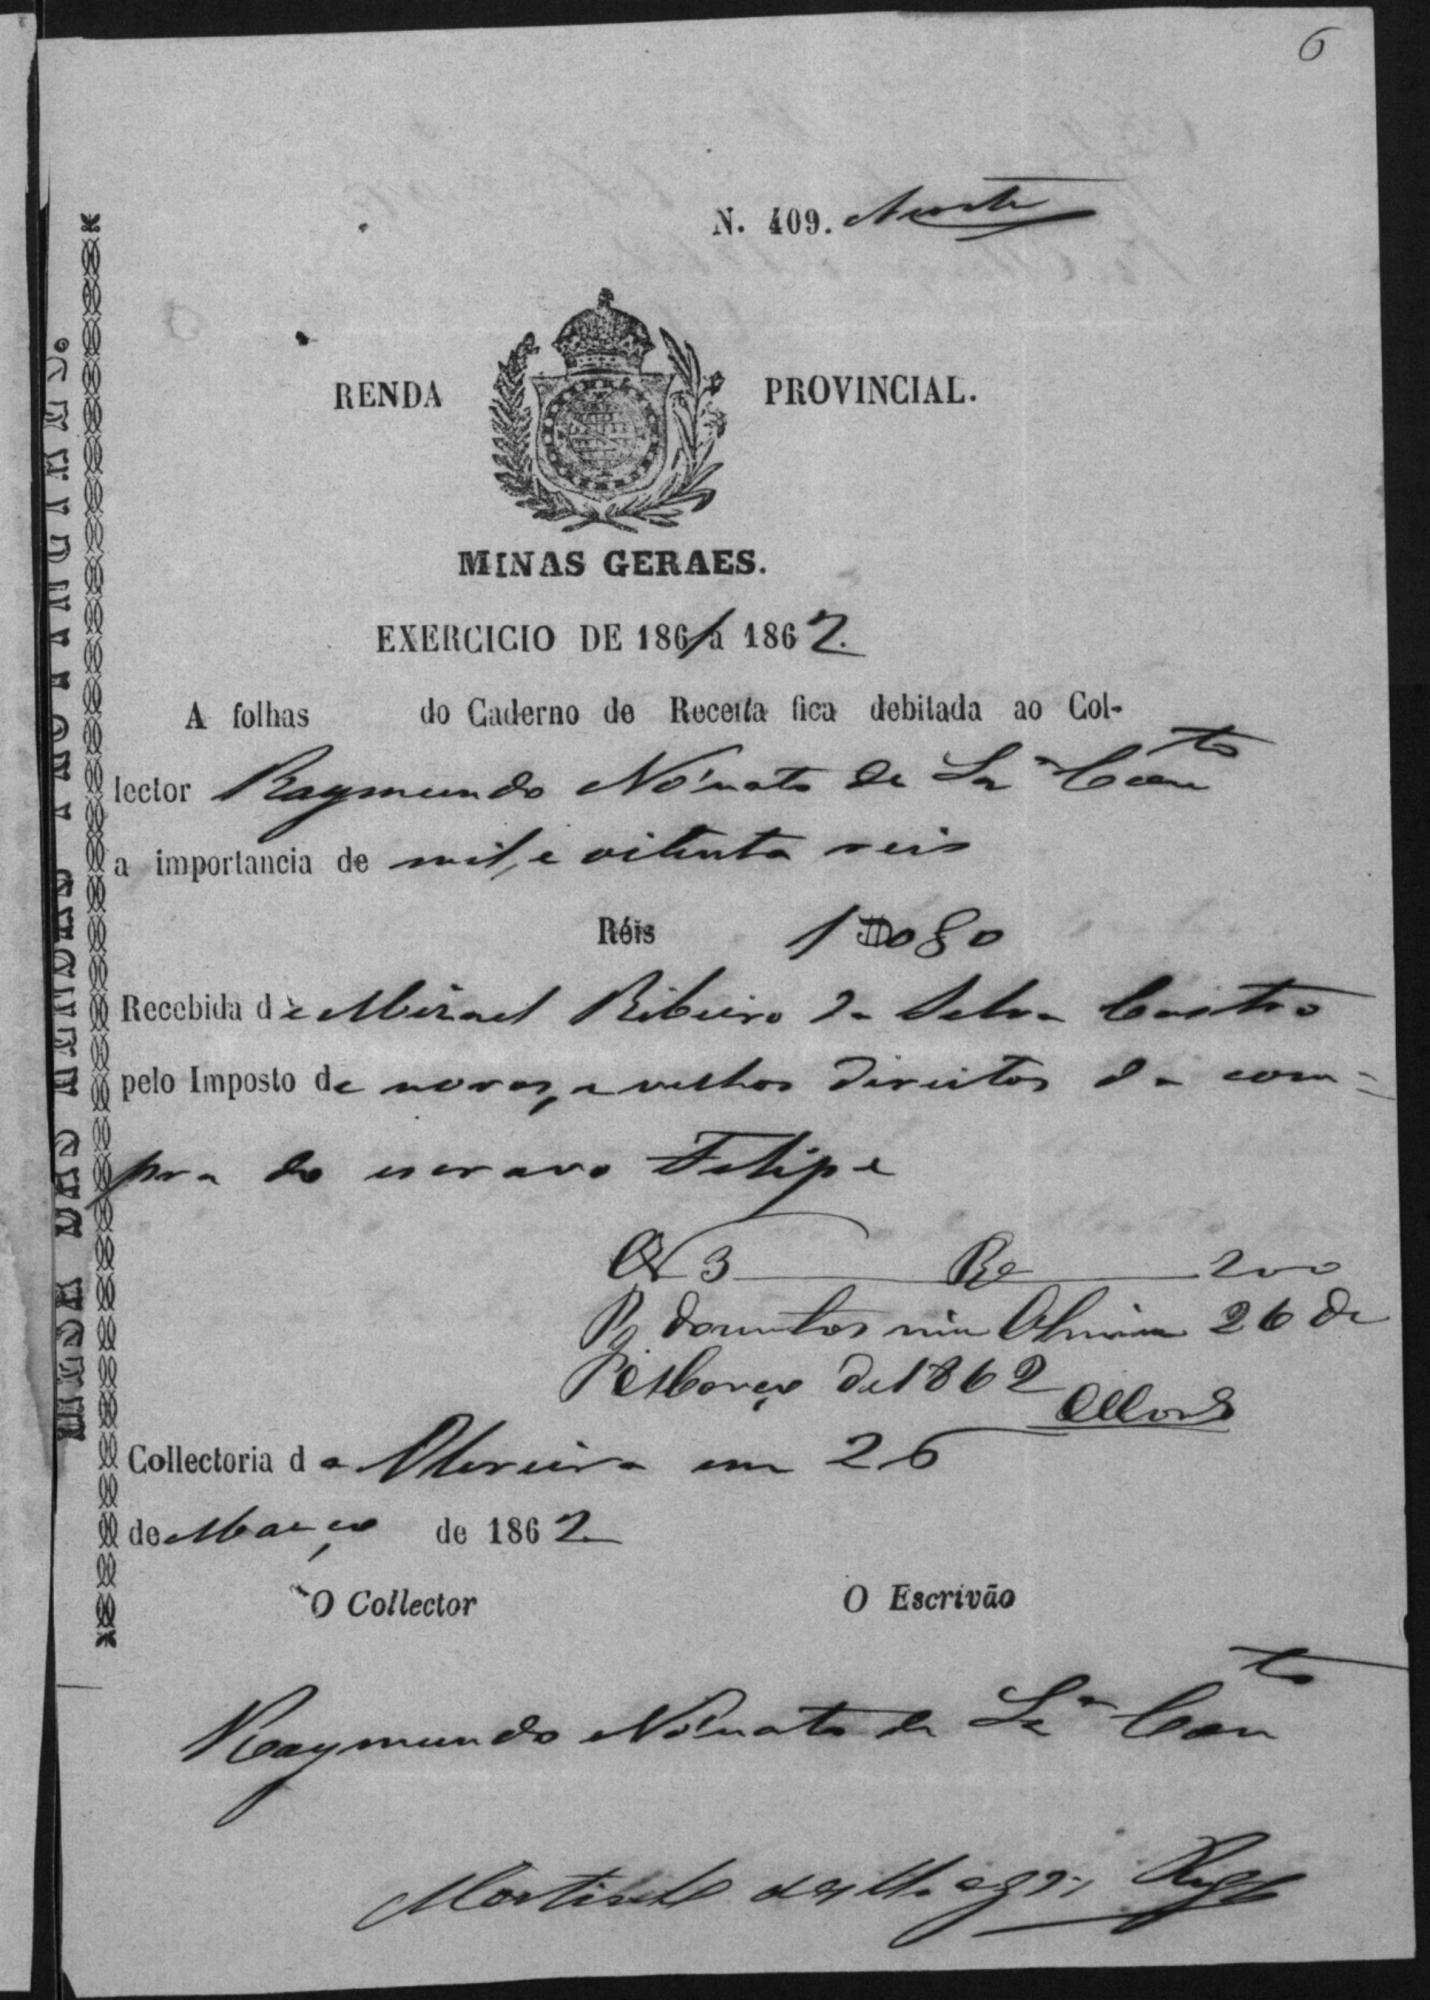 6
N. 409.
RENDA PROVINCIAL.
MINAS GERAES.
EXERCICIO DE 1861 a 1862.
A folhas do Caderno de Receita fica debitada ao Col-
lector Raymundo Nonato de Sa
a importancia de mil, e oitenta reis
Réis 1$080
Recebida de Misael Ribeiro da Silva Castro
pelo Imposto de novos, e velhos direitos da com=
pra do escravo Felipe
N 3 Rs 200
Pg dusentos reis Oliveira 26 de
Março de 1862
Collectoria da Oliveira em 26
de Março de 1862
O Collector O Escrivão
Raymundo Nonato de Sa